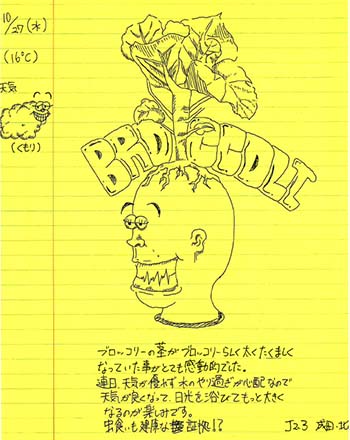 10/27(水)
(16℃)
天気
(くもり)
BROCCOLI
ブロッコリーの茎がブロッコリーらしく太くたくましく
なっていた事がとても感動的でした。
連日、天気が優れず水のやり過ぎが心配なので
天気が良くなって、日光も浴びてもっと大きく
なるのが楽しみです。
虫食いも健康な証拠!?
J23